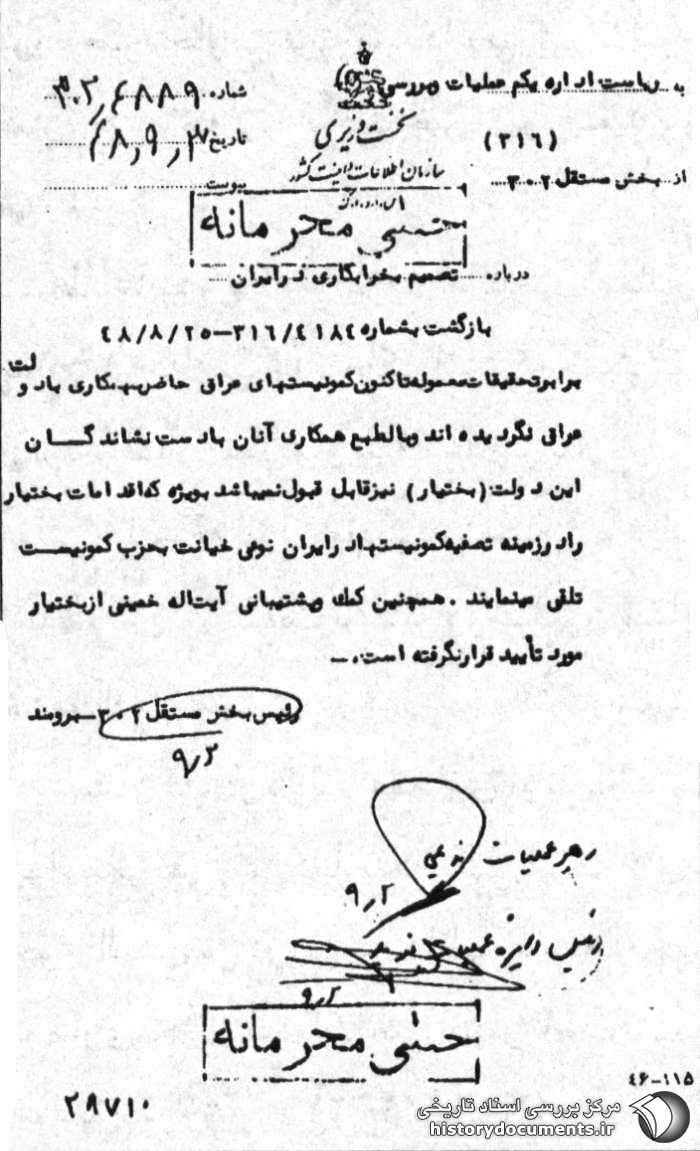 به ریاست اداره یکم عملیات و بررسی
(۳۱۶)
از بخش مستقل ۳۰۲
نخست وزیری
سازمان اطلاعات و امنیت کشور
س.ا.و.ا.ک
شماره ۳۰۲٫۴۸۸۹
تاریخ ۴۸٫۹٫
پیوست
خیلی محرمانه
درباره تصمیم بخرابکاری در ایران
بازگشت بشماره ۳۱۶/۴۱۸۴-۴۸/۸/۲۵
برابر تحقیقات معموله تاکنون کمونیستهای عراقی حاضر بهمکاری با دولت
عراق نگردیده اند و بالطبع همکاری آنان با دست نشاندگان
این دولت (بختیار) نیز قابل قبول نمیباشد بویژه که اقدامات بختیار
را در زمینه تصفیه کمونیستها در ایران نوعی خیانت بحزب کمونیست
تلقی مینمایند. همچنین کمک و پشتیبانی آیت اله خمینی از بختیار
مورد تأیید قرار نگرفته است.-
رئیس بخش مستقل ۳۰۲-برومند
۹٫۳
رهبر عملیات
۹٫۲
رئیس دایره عملیات
۹٫۲
خیلی محرمانه
۴۶-۱۱۵
۲۹۷۱۰
مرکز بررسی اسناد تاریخی
historydocuments.ir